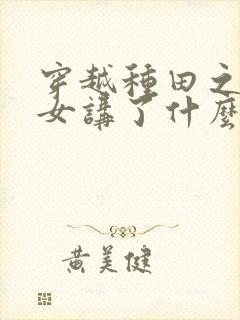 穿越種田之
女講了什麼
黃美健